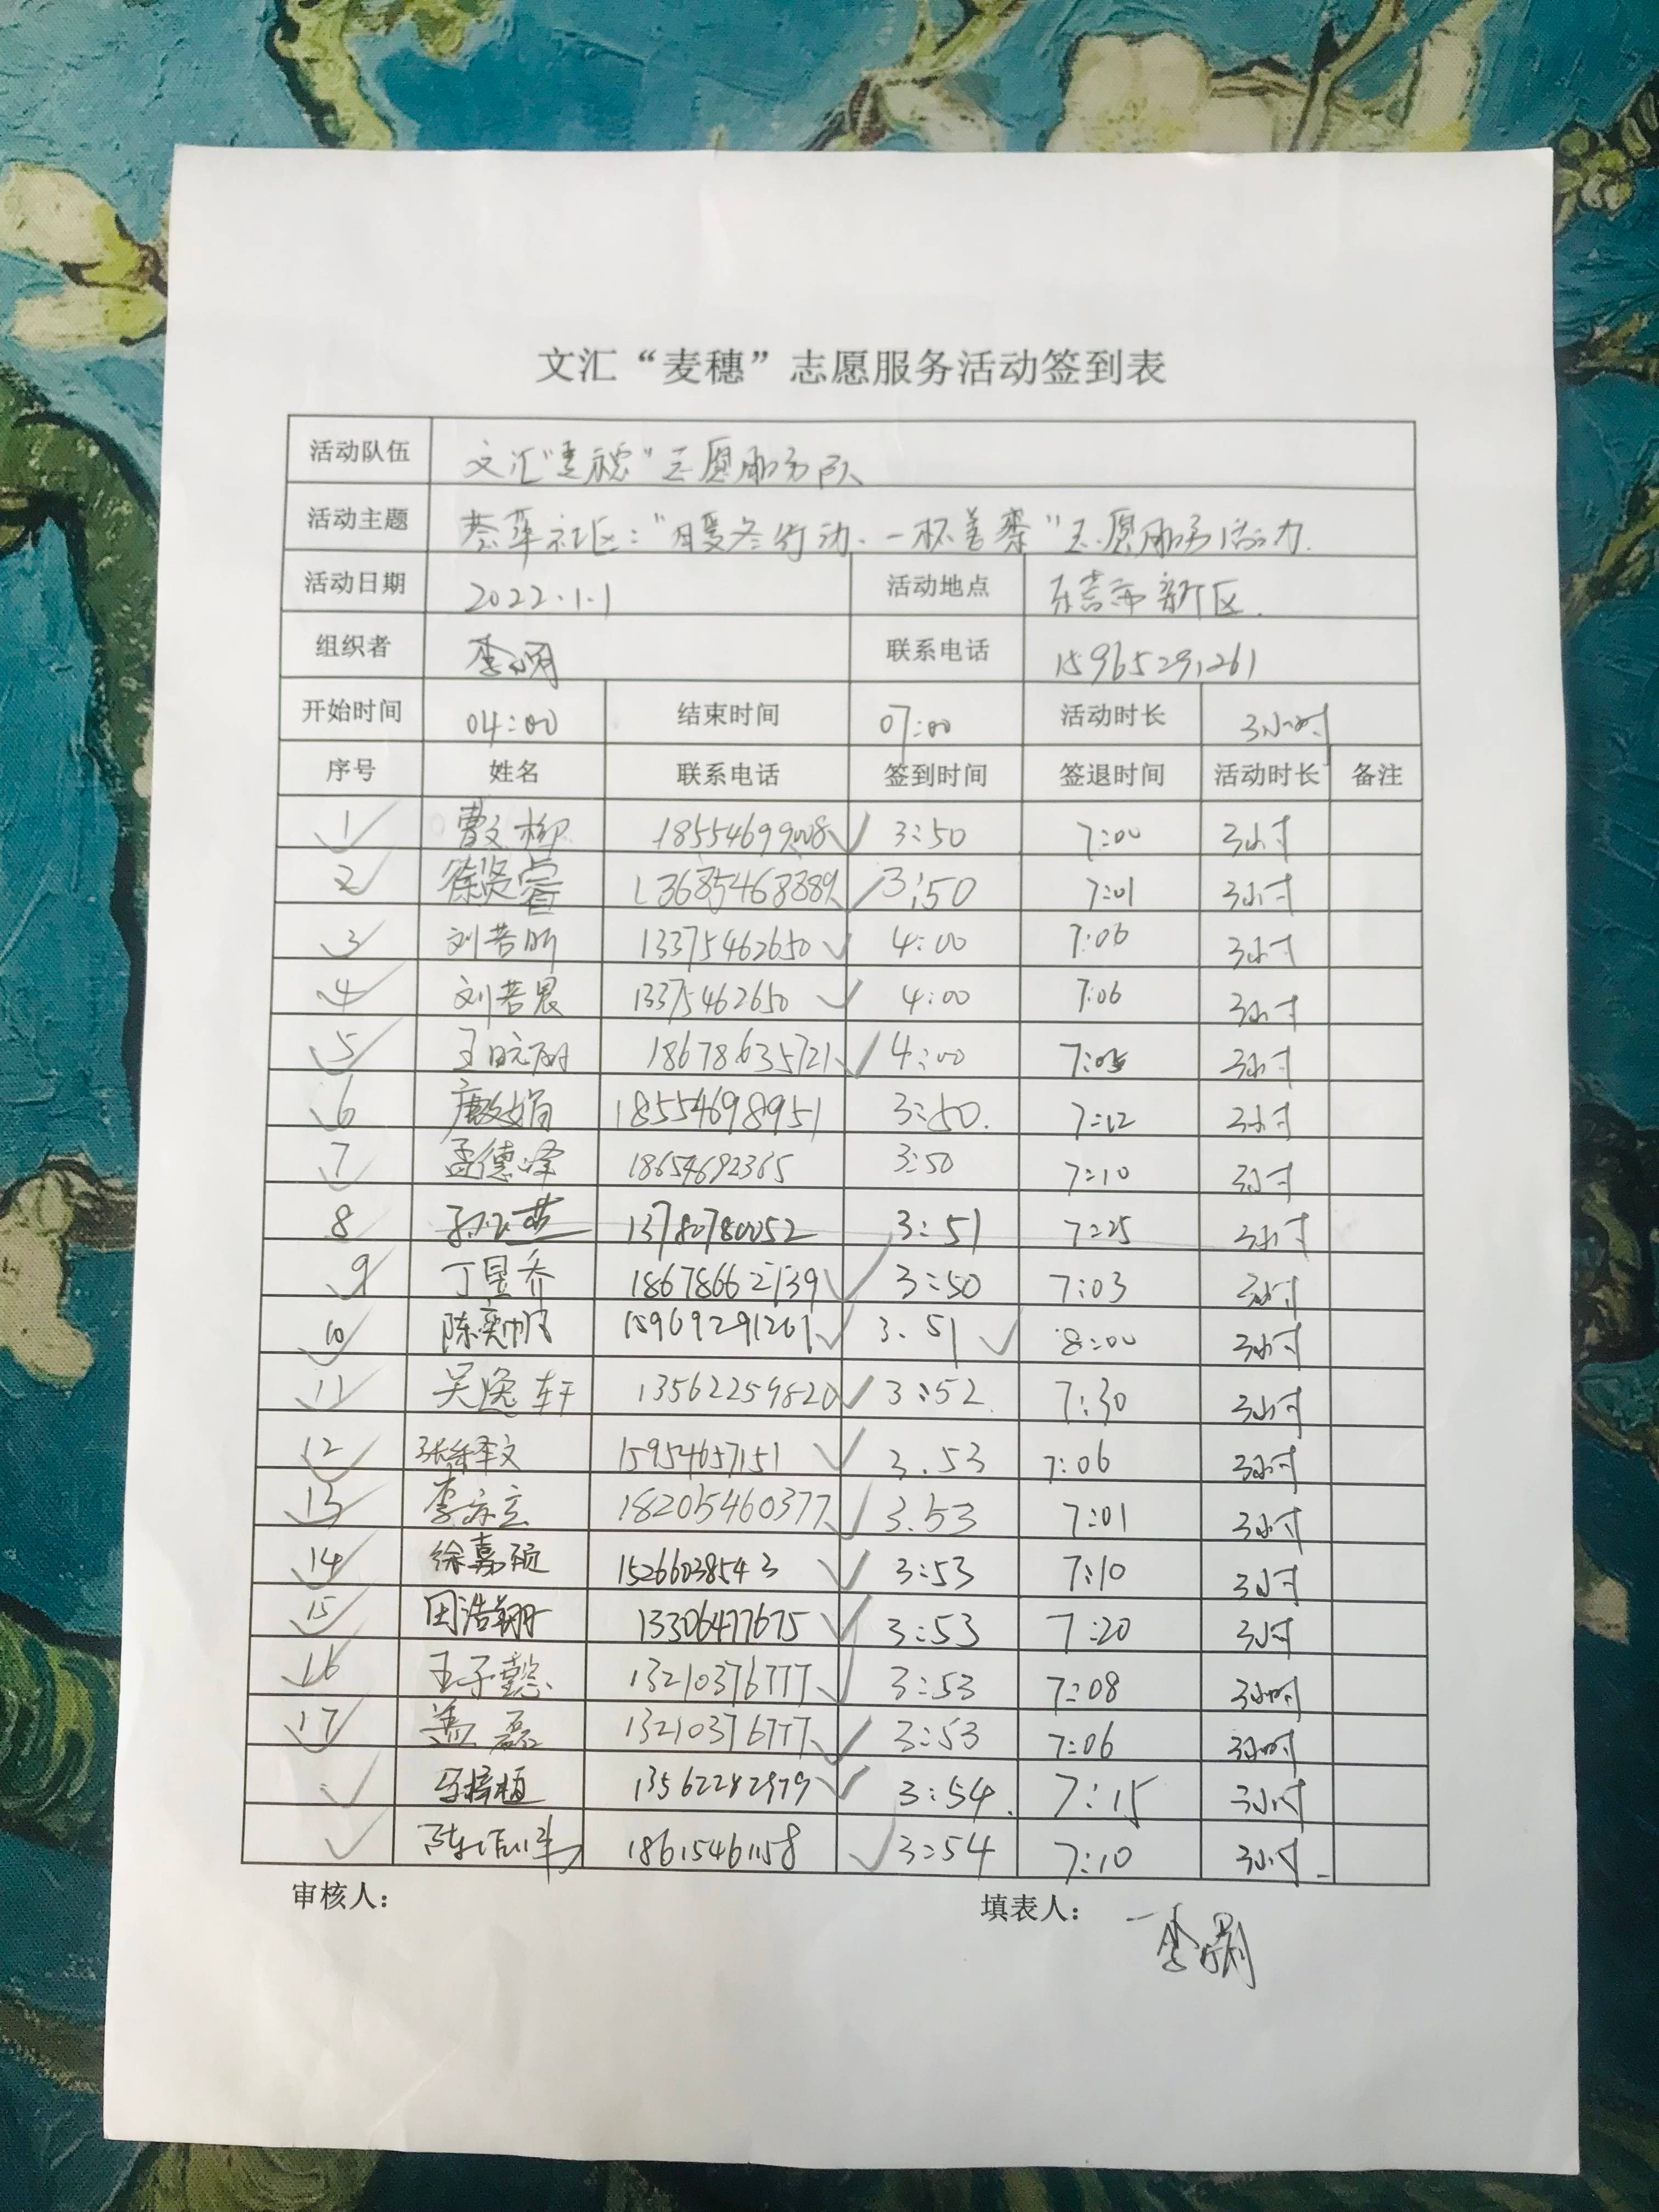 文汇“麦穗”志愿服务活动签到表
活动队伍 文汇“麦穗”志愿服务队
活动主题 荟萃社区：“暖冬行动、一杯善粥”志愿服务活动.
活动日期 2022.1.1 活动地点 东营市 新区.
组织者 联系电话 15965291261
开始时间 04:00 结束时间 07:00 活动时长 3小时
序号 姓名 联系电话 签到时间 签退时间 活动时长 备注
1 曹文柳 18554699008 3:50 7:00 3小时
2 徐贤睿 3:50 7:01 3小时
3 刘若昕 13375462650 4:00 7:06 3小时
4 刘若晨 13375462650 4:00 7:06 3小时
5 18678635721 4:00 7:05 3小时
6 18554698951 3:50. 7:12 3小时
7 孟德峰 18654692365 3:50 7:10 3小时
8 13780780052 3:51 7:25 3小时
9 丁昱乔 18678662139 3:50 7:03 3小时
10 陈奕帆 15969291261 3.51 8:00 3小时
11 吴逸轩 13562259820 3:52. 7:30 3小时
12 张绎文 15954657151 3.53 7:06 3小时
13 李亦立 18205460377 3.53 7:01 3小时
14 徐嘉硕 15266038543 3:53 7:10 3小时
15 田浩翔 13306477675 3:53 7:20 3小时
16 王子懿 13210376777 3:53 7:08 3小时
17 盖磊 13210376777 3:53 7:06 3小时
13562282979 3:54. 7:15 3小时
18615461158 3:54 7:10 3小时
审核人： 填表人：